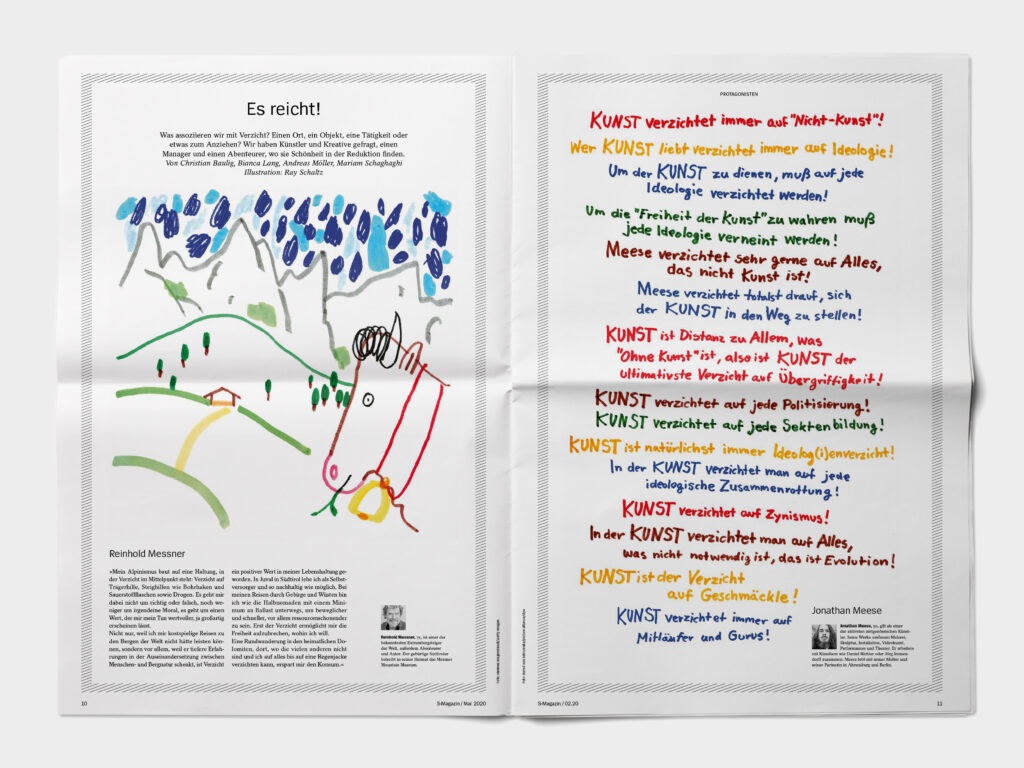 Es reicht!
Was assoziieren wir mit Verzicht? Einen Ort, ein Objekt, eine Tätigkeit oder
etwas zum Anziehen? Wir haben Künstler und Kreative gefragt, einen
Manager und einen Abenteurer, wo sie Schönheit in der Reduktion finden.
Von Christian Baulig, Bianca Lang, Andreas Möller, Mariam Schaghaghi
Illustration: Ray Schultz
Reinhold Messner
»Mein Alpinismus baut auf eine Haltung, in
der Verzicht im Mittelpunkt steht: Verzicht auf
Trägerhilfe, Steighilfen wie Bohrhaken und
Sauerstoffflaschen sowie Drogen. Es geht mir
dabei nicht um richtig oder falsch, noch we-
niger um irgendeine Moral, es geht um einen
Wert, der mir mein Tun wertvoller, ja großartig
erscheinen lässt.
Nicht nur, weil ich mir kostspielige Reisen zu
den Bergen der Welt nicht hätte leisten kön-
nen, sondern vor allem, weil er tiefere Erfah-
rungen in der Auseinandersetzung zwischen
Menschen- und Bergnatur schenkt, ist Verzicht
ein positiver Wert in meiner Lebenshaltung ge-
worden. In Juval in Südtirol lebe ich als Selbst-
versorger und so nachhaltig wie möglich. Bei
meinen Reisen durch Gebirge und Wüsten bin
ich wie die Halbnomaden mit einem Mini-
mum an Ballast unterwegs, um beweglicher
und schneller, vor allem ressourcenschonender
zu sein. Erst der Verzicht ermöglicht mir die
Freiheit aufzubrechen, wohin ich will.
Eine Rundwanderung in den heimatlichen Do-
lomiten, dort, wo die vielen anderen nicht
sind und ich auf alles bis auf eine Regenjacke
verzichten kann, erspart mir den Konsum.«
Reinhold Messner, 75, ist einer der
bekanntesten Extrembergsteiger
der Welt, außerdem Abenteurer
und Autor. Der gebürtige Südtiroler
betreibt in seiner Heimat das Messner
Mountain Museum.
10
S-Magazin / Mai 2020
PROTAGONISTEN
KUNST verzichtet immer auf "Nicht-Kunst"!
Wer KUNST liebt verzichtet immer auf Ideologie!
Um der KUNST zu dienen, muß auf jede
Ideologie verzichtet werden!
Um die "Freiheit der Kunst" zu wahren muß
jede Ideologie verneint werden!
Meese verzichtet sehr gerne auf Alles,
das nicht Kunst ist!
Meese verzichtet totalst drauf, sich
der KUNST in den Weg zu stellen!
KUNST ist Distanz zu Allem, was
"Ohne Kunst" ist, also ist KUNST der
ultimativste Verzicht auf Übergriffigkeit!
KUNST verzichtet auf jede Politisierung!
KUNST verzichtet auf jede Sektenbildung!
KUNST ist natürlichst immer Ideolog(i)enverzicht!
In der KUNST verzichtet man auf jede
ideologische Zusammenrottung!
KUNST verzichtet auf Zynismus!
In der KUNST verzichtet man auf Alles,
was nicht notwendig ist, das ist Evolution!
KUNST ist der Verzicht
auf Geschmäckle!
KUNST verzichtet immer auf
Mitläufer und Gurus!
Jonathan Meese
Jonathan Meese, 50, gilt als einer
der aktivsten zeitgenössischen Künst-
ler. Seine Werke umfassen Malerei,
Skulptur, Installation, Videokunst,
Performances und Theater. Er arbeitete
mit Künstlern wie Daniel Richter oder Jörg Immen-
dorff zusammen. Meese lebt mit seiner Mutter und
seiner Partnerin in Ahrensburg und Berlin.
S-Magazin / 02.20
11